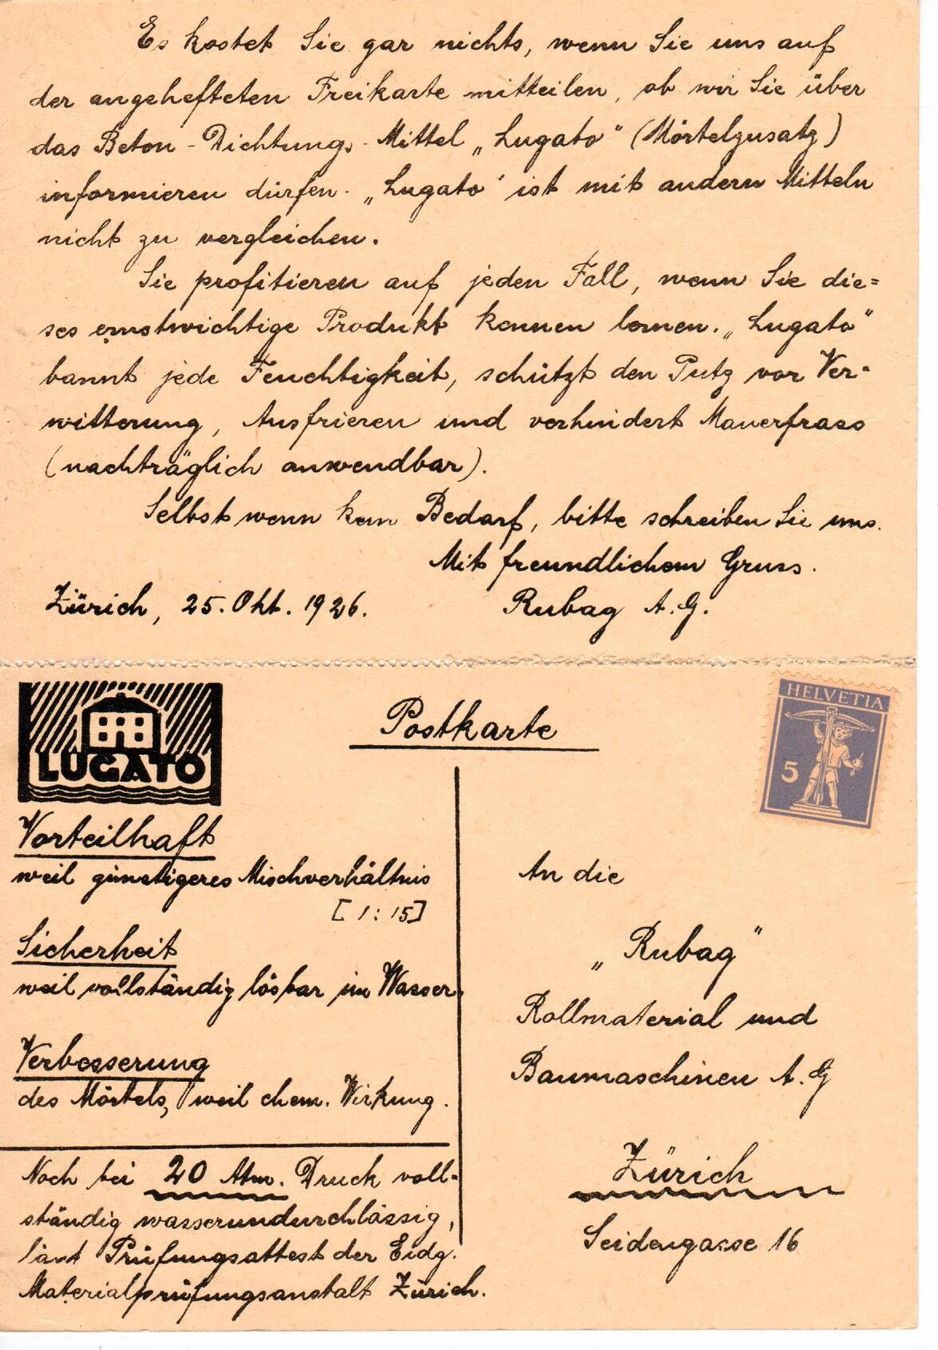 Es kostet Sie gar nichts, wenn Sie uns auf
der angehefteten Freikarte mitteilen, ob wir Sie über
das Beton-Dichtungs-Mittel „Lugato“ (Mörtelzusatz)
informieren dürfen. „Lugato“ ist mit andern Mitteln
nicht zu vergleichen.
Sie profitieren auf jeden Fall, wenn Sie die=
ses ernstwichtige Produkt kennen lernen. „Lugato“
bannt jede Feuchtigkeit, schützt den Putz vor Ver-
witterung, Ausfrieren und verhindert Mauerfrass
(nachträglich anwendbar).
Selbst wenn kein Bedarf, bitte schreiben Sie uns.
Mit freundlichem Gruss.
Zürich, 25. Okt. 1926.
Rubag A.G.
LUGATO
Postkarte
HELVETIA
5
Vorteilhaft
weil günstigeres Mischverhältnis
[1:15]
Sicherheit
weil vollständig lösbar im Wasser.
Verbesserung
des Mörtels, weil chem. Wirkung.
Noch bei 20 Atm. Druck voll-
ständig wasserundurchlässig,
laut Prüfungsattest der Eidg.
Materialprüfungsanstalt Zürich.
An die
„Rubag“
Rollmaterial und
Baumaschinen A.G
Zürich
Seidengasse 16